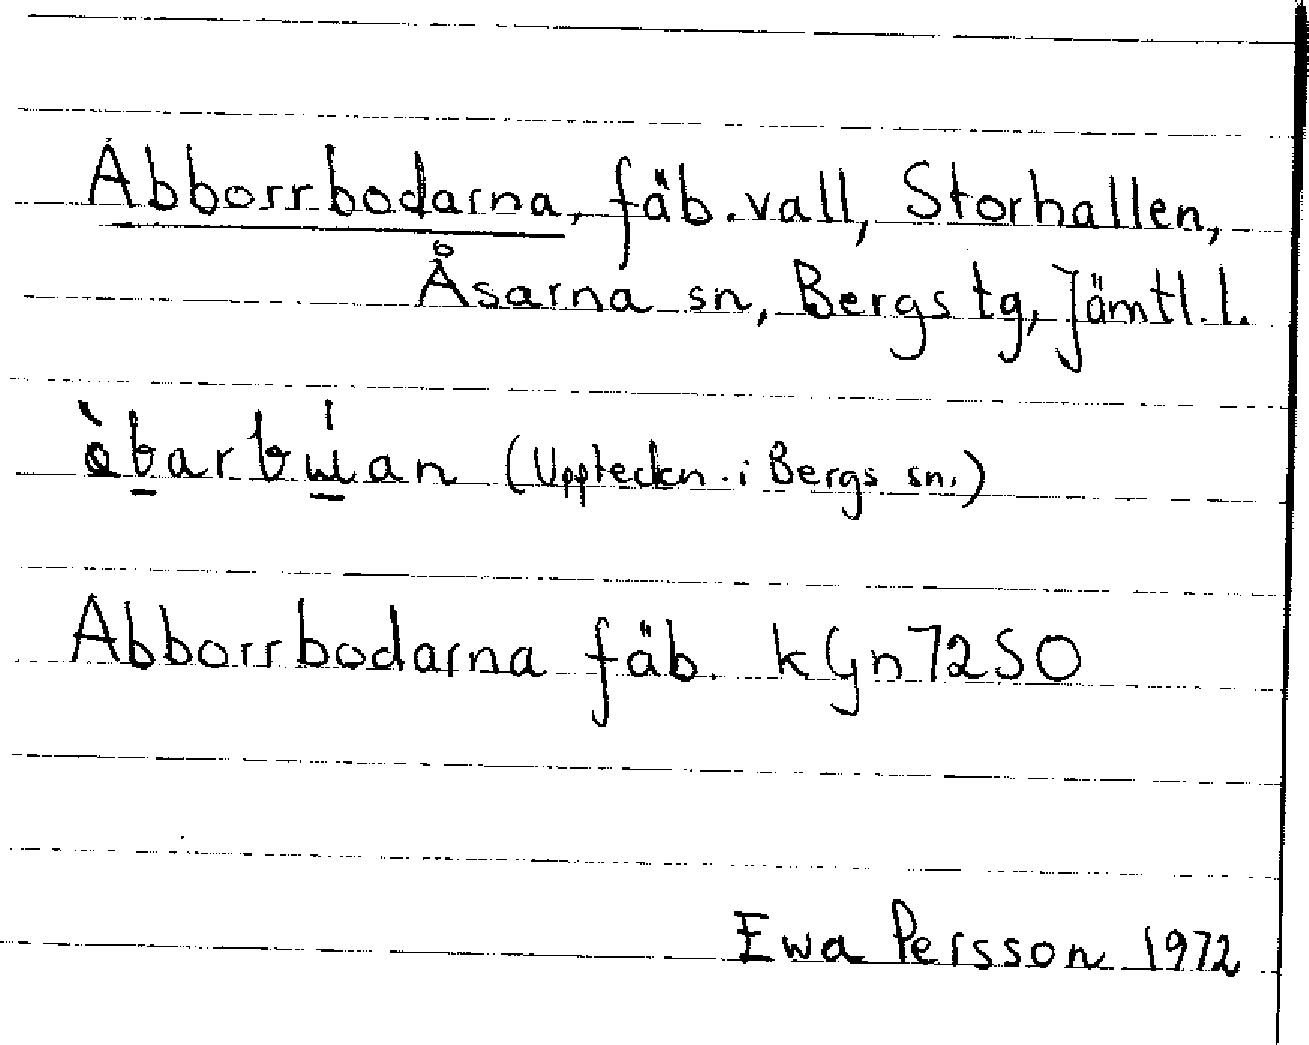 Abborrbodarna, fäb.vall, Storhallen,
Åsarna sn, Bergs tg, Jämtl.l.
(Uppteckn. i Bergs sn.)
Abborrbodarna fäb. kGn72SO
Ewa Persson 1972